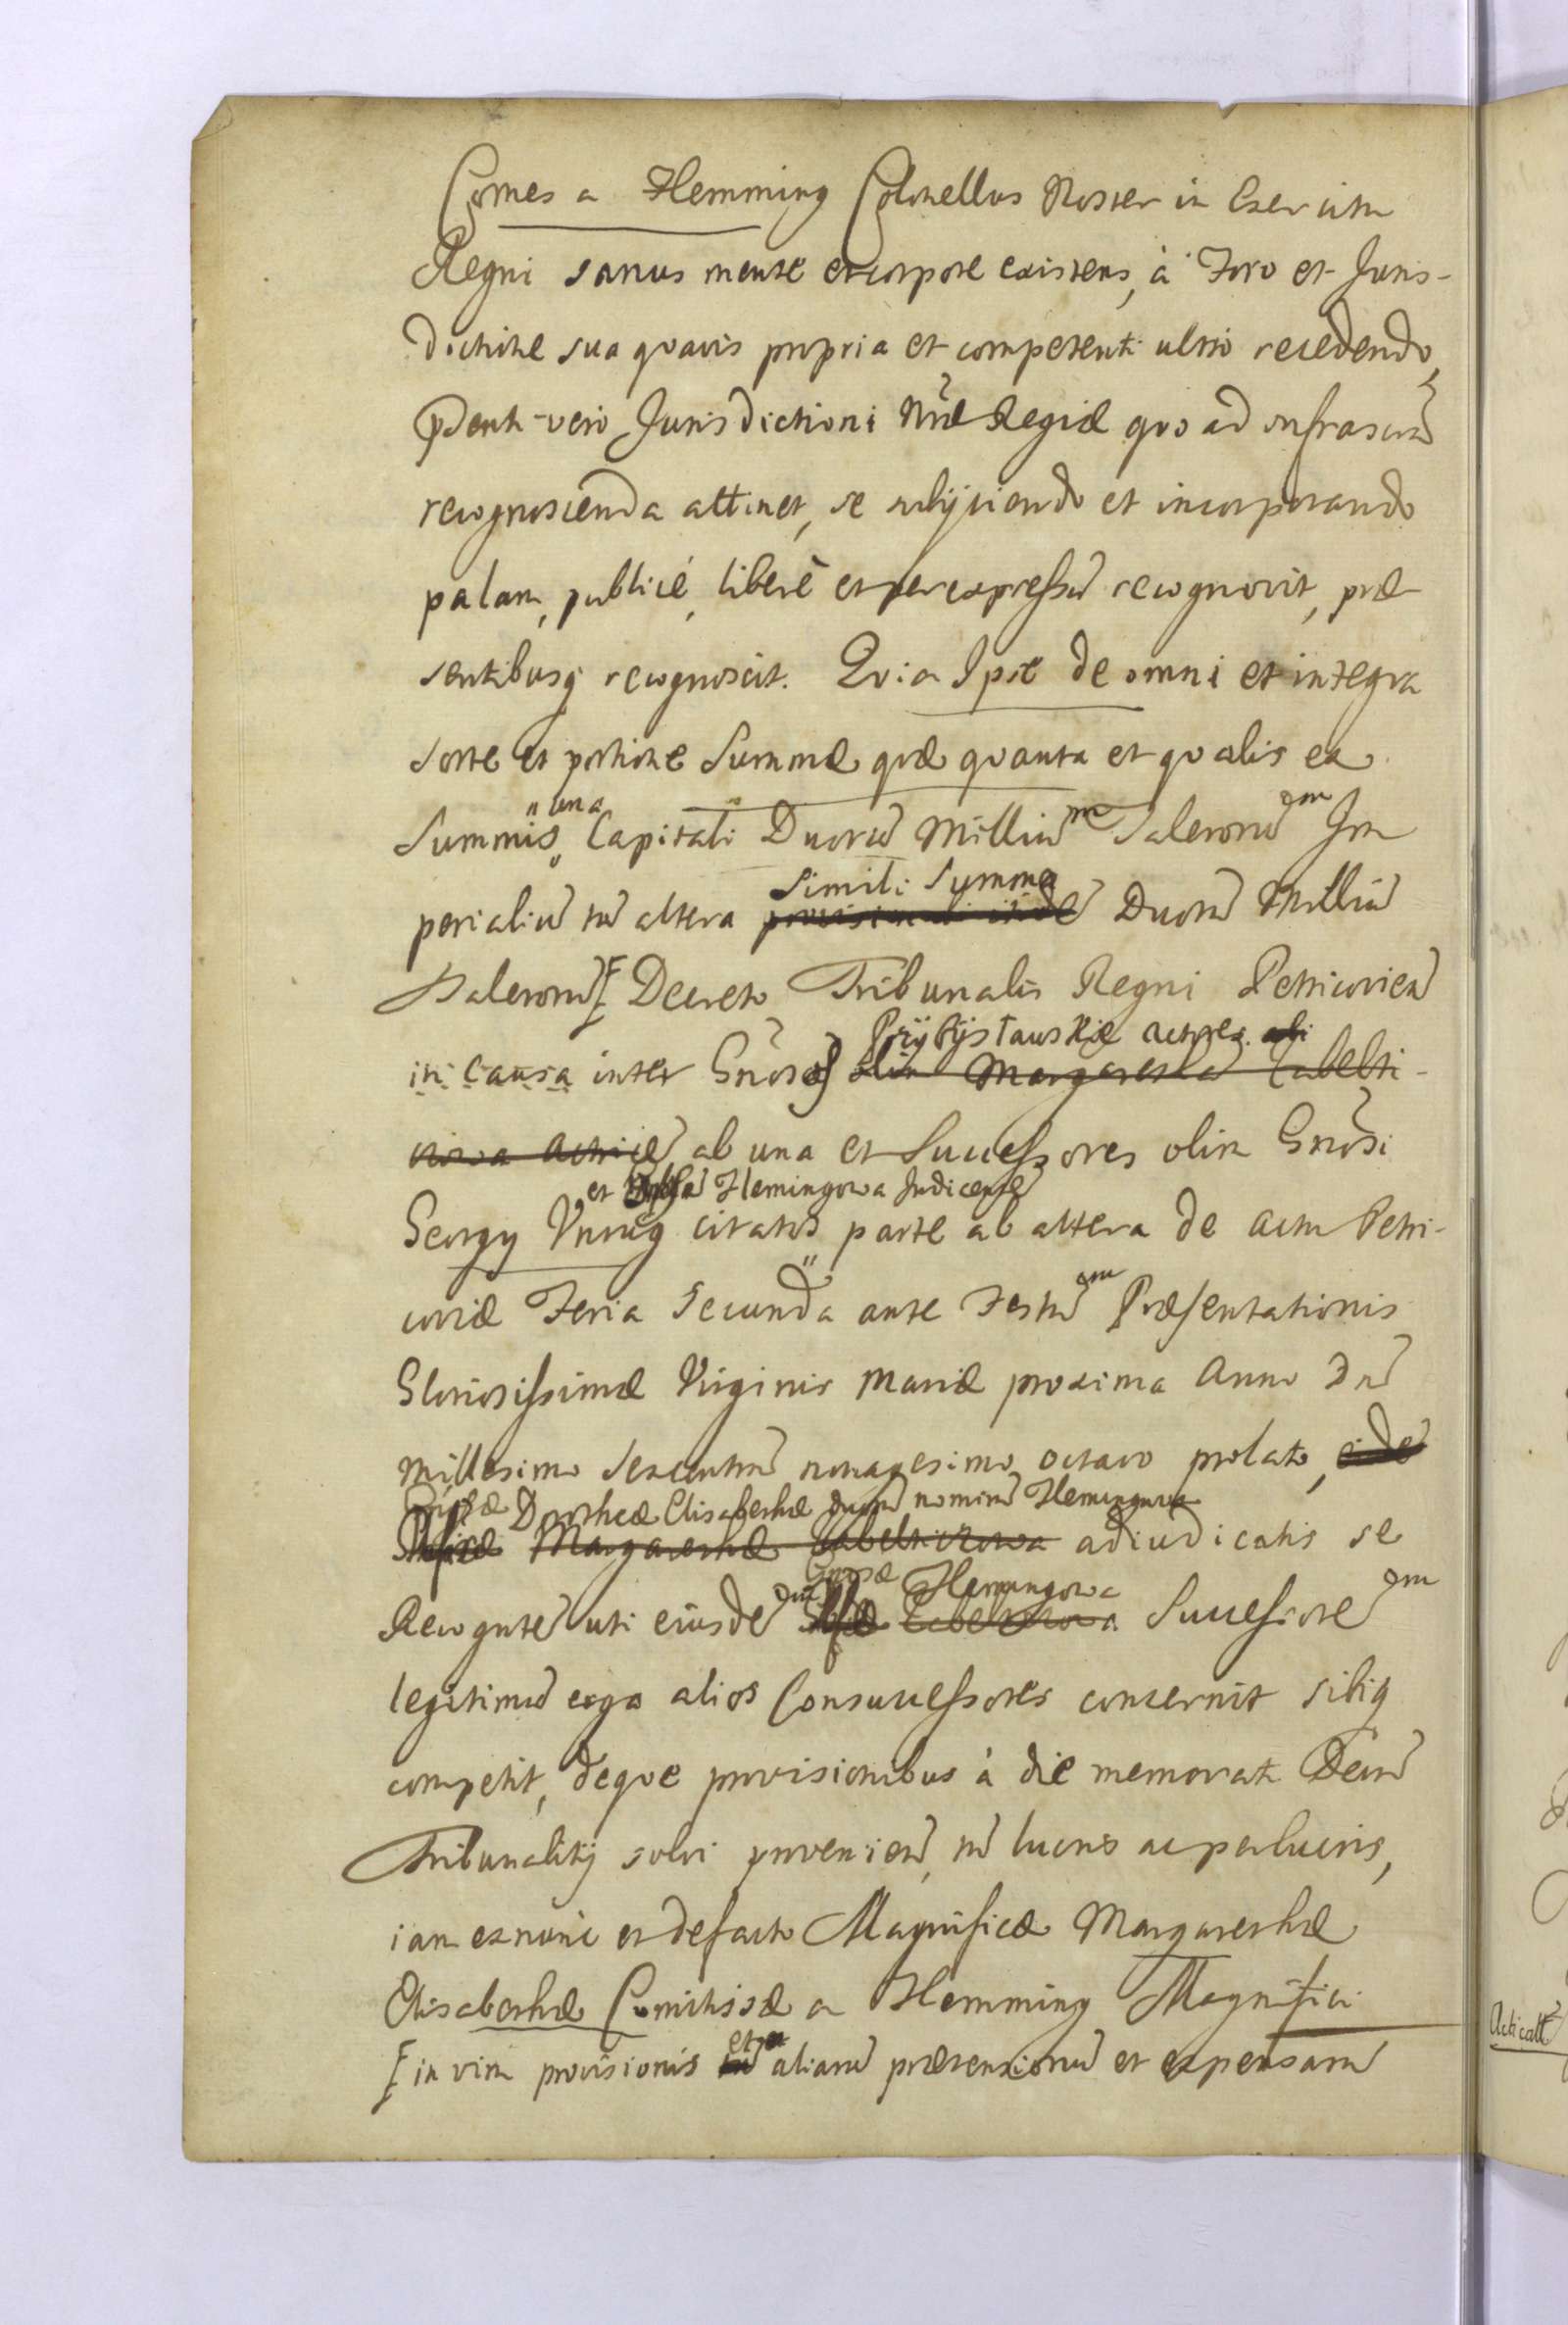 Comes a Hemming Colonellus Noster in Exercitu
Regni sanus mente et corpore existens, à Foro et Juris-
dictione sua quavis propria et competenti ultro recedendo,
vero Jurisdictioni Nrae Regiae quo ad infrascra
recognoscenda attinet, se subijciendo et incorporando
palam, publicé, liberè et per expressum recognovit, prae
sentibusq recognoscit. Quia Ipse de omni et integra
sorte et portione Summae quae quanta et qualis ea
una
Summis, Capitali Duorum Millium Talerorum Im
Simili Summa
perialium tum altera Duorum Millium
Talerorum [ Decreto Tribunalis Regni Petricovien
Przybystawskie actores
in causa inter Gnosos olim Margaretha Cabelti-
ab una et Successores olim Gnosi
et Hemingowa Judicente
Georgy Vnrug citatos parte ab altera de actu Petri-
coviae Feria Secunda ante Festum Praesentationis
Gloriosissimae Virginis Mariae proxima Anno Dni
Millesimo Sexcentmo nonagesimo octavo prolato,
Gnosae Dorotheae Elisabethae duorum nominum Hemingowa
Margarethae adiudicatis se
Gnosae Hemingowa
Recognten uti eiusdem Successorem
legitimum erga alios Consuccessores concernit sibiq
competit, deque provisionibus à die memorati Decr
Tribunalitij solvi provenien, tum lucris ac perlucris,
iam ex nunc et de facto Magnificae Margarethae
Elisabethae Comitissae a Hemming Magnifici
[ in vim provisionis et aliarum praetensionum et expensarum
Acticatt